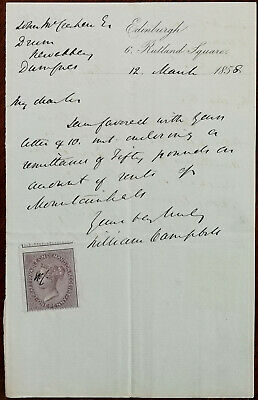 John McCubben Es
Drum
Newabbey
Dumfries
Edinburgh
6, Rutland Square,
12, March 1858.
My dear Sir
I am favored with yours
letter of 10. inst enclosing a
remittance of Fifty pounds as
amount of rents of
Mountainhall
Yours very truly
William Campbell